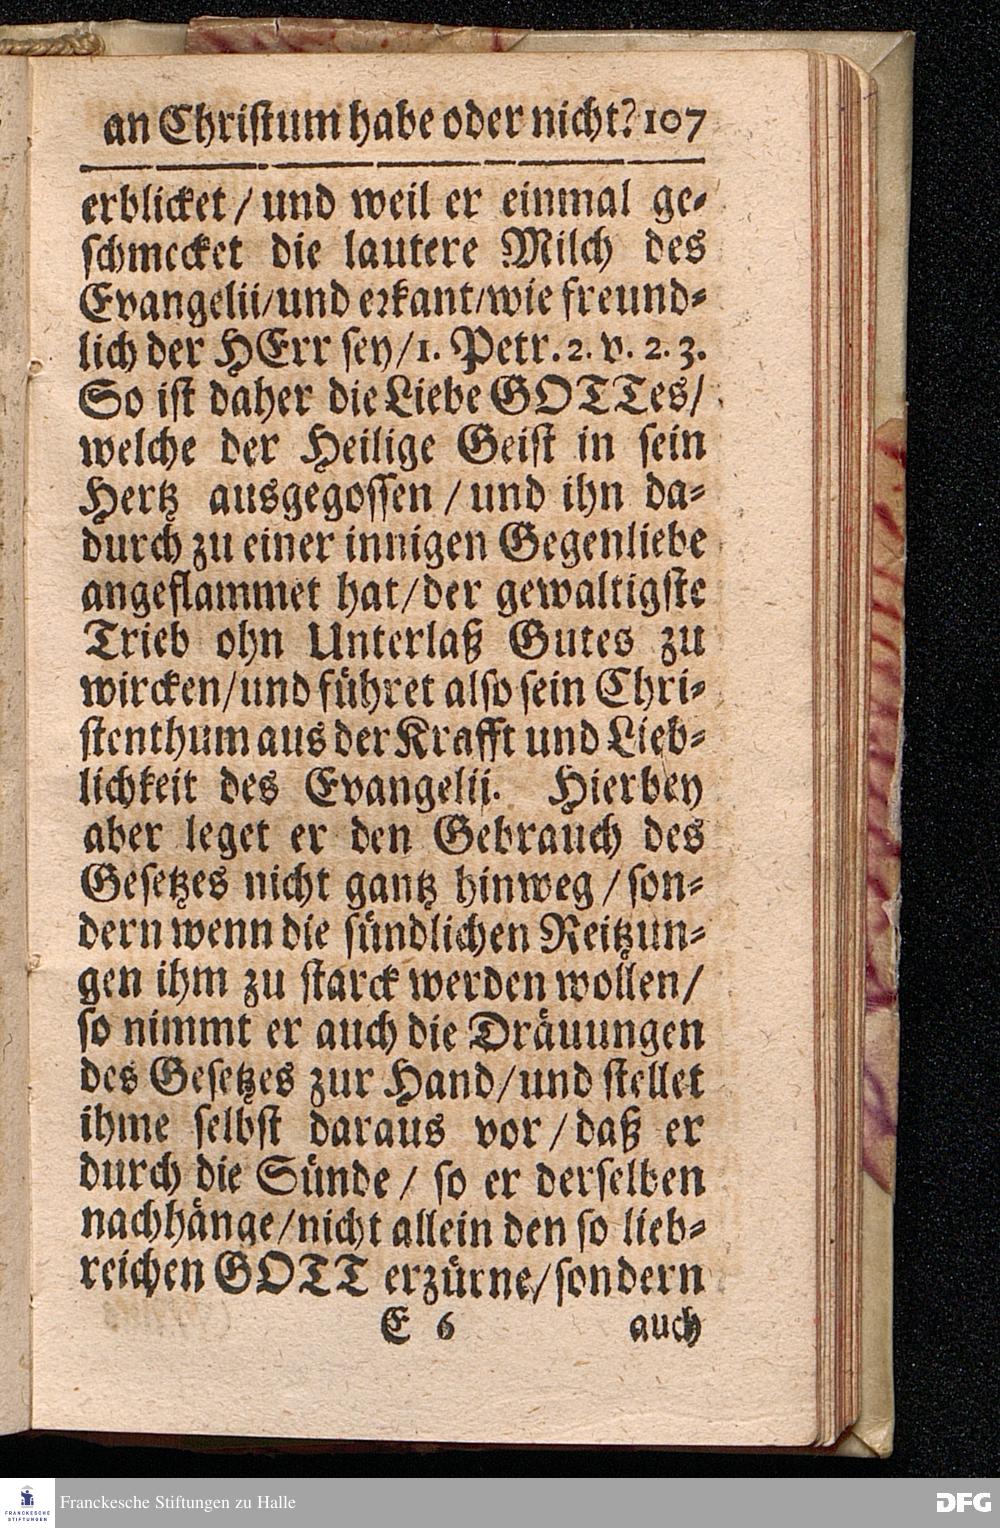 an Christum habe oder nicht? 107
erblicket / und weil er einmal ge-
schmecket die lautere Milch des
Evangelii/und erkant/wie freund-
lich der HErr sey/1. Petr. 2. v. 2. 3.
So ist daher die Liebe GOTTes/
welche der Heilige Geist in sein
Hertz ausgegossen / und ihn da-
durch zu einer innigen Gegenliebe
angeflammet hat/der gewaltigste
Trieb ohn Unterlaß Gutes zu
wircken/und führet also sein Chri-
stenthum aus der Krafft und Lieb-
lichkeit des Evangelii. Hierbey
aber leget er den Gebrauch des
Gesetzes nicht gantz hinweg / son-
dern wenn die sündlichen Reitzun-
gen ihm zu starck werden wollen/
so nimmt er auch die Dräuungen
des Gesetzes zur Hand/und stellet
ihme selbst daraus vor / daß er
durch die Sünde / so er derselben
nachhänge/nicht allein den so lieb-
reichen GOTT erzürne/sondern
E 6 auch
FRANCKESCHE
STIFTUNGEN
Franckesche Stiftungen zu Halle
DFG